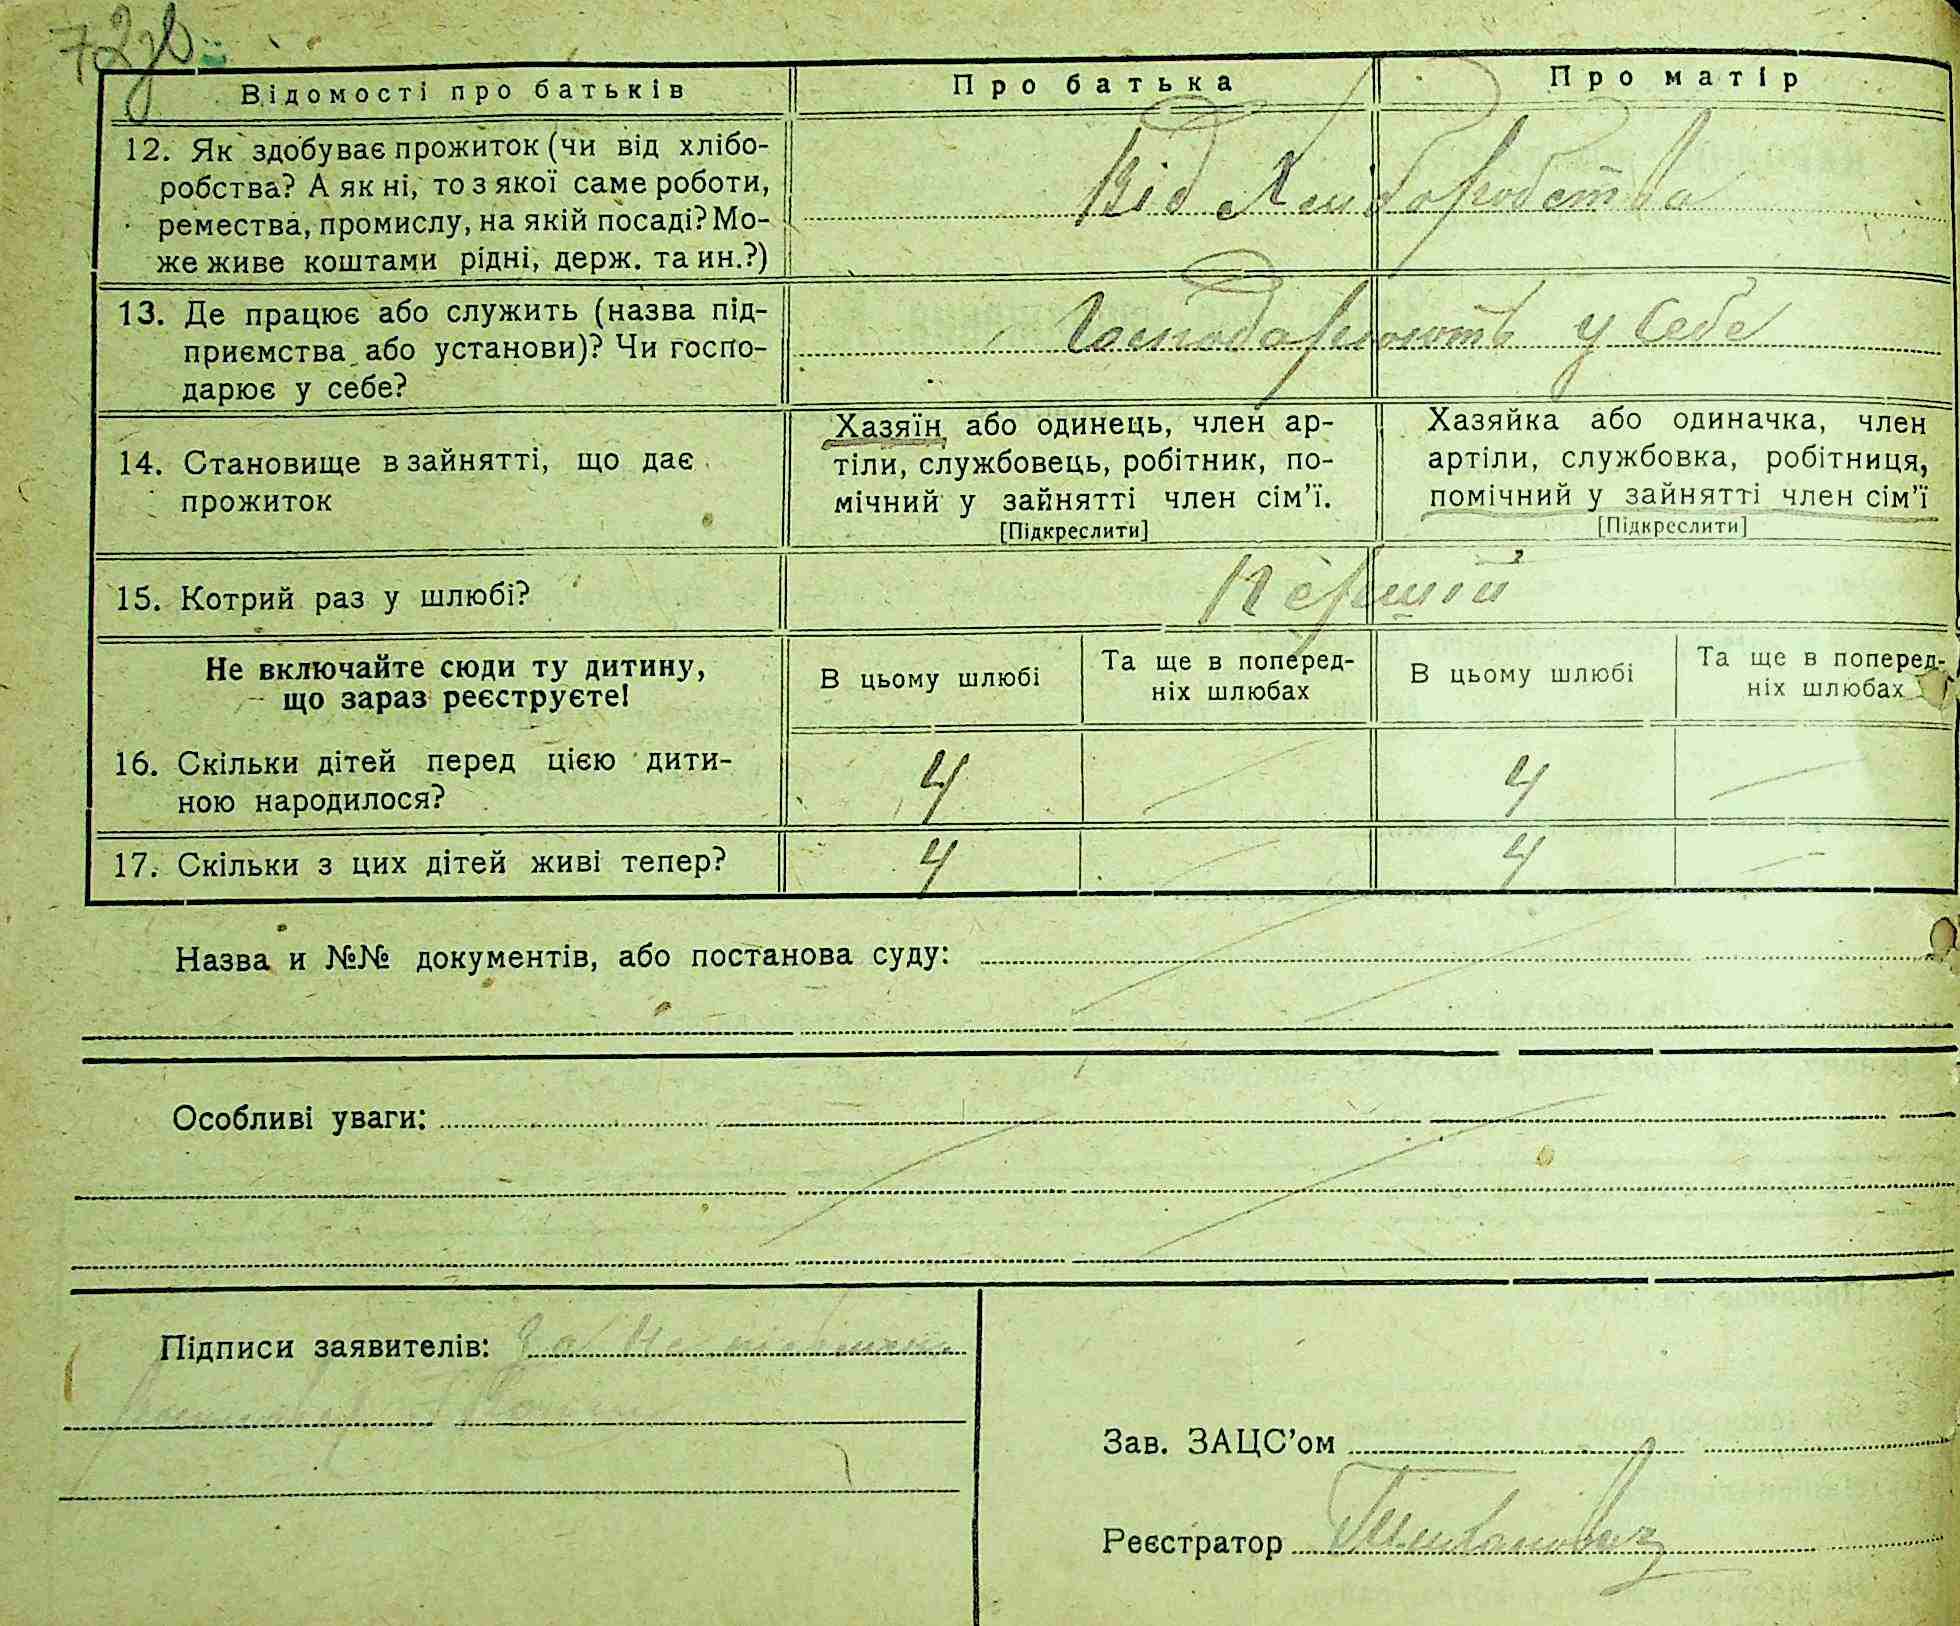 72зв
Відомості про батьків
Про батька
Про матір
12. Як здобуває прожиток (чи від хлібо-
робства? А як ні, то з якої саме роботи,
ремества, промислу, на якій посаді? Мо-
же живе коштами рідні, держ. та ин.?)
Від Хліборобства
13. Де працює або служить (назва під-
приємства або установи)? Чи госпо-
дарює у себе?
Господарюють у себе
14. Становище в зайнятті, що дає
прожиток
Хазяїн або одинець, член ар-
тіли, службовець, робітник, по-
мічний у зайнятті член сім'ї.
[Підкреслити]
Хазяйка або одиначка, член
артіли, службовка, робітниця,
помічний у зайнятті член сім'ї
[Підкреслити]
15. Котрий раз у шлюбі?
Першій
Не включайте сюди ту дитину,
що зараз реєструєте!
В цьому шлюбі
Та ще в поперед-
ніх шлюбах
В цьому шлюбі
Та ще в поперед-
ніх шлюбах
16. Скільки дітей перед цією дити-
ною народилося?
4
—
4
—
17. Скільки з цих дітей живі тепер?
4
—
4
—
Назва и №№ документів, або постанова суду:
Особливі уваги:
Підписи заявителів: За
Зав. ЗАЦС'ом
Реєстратор